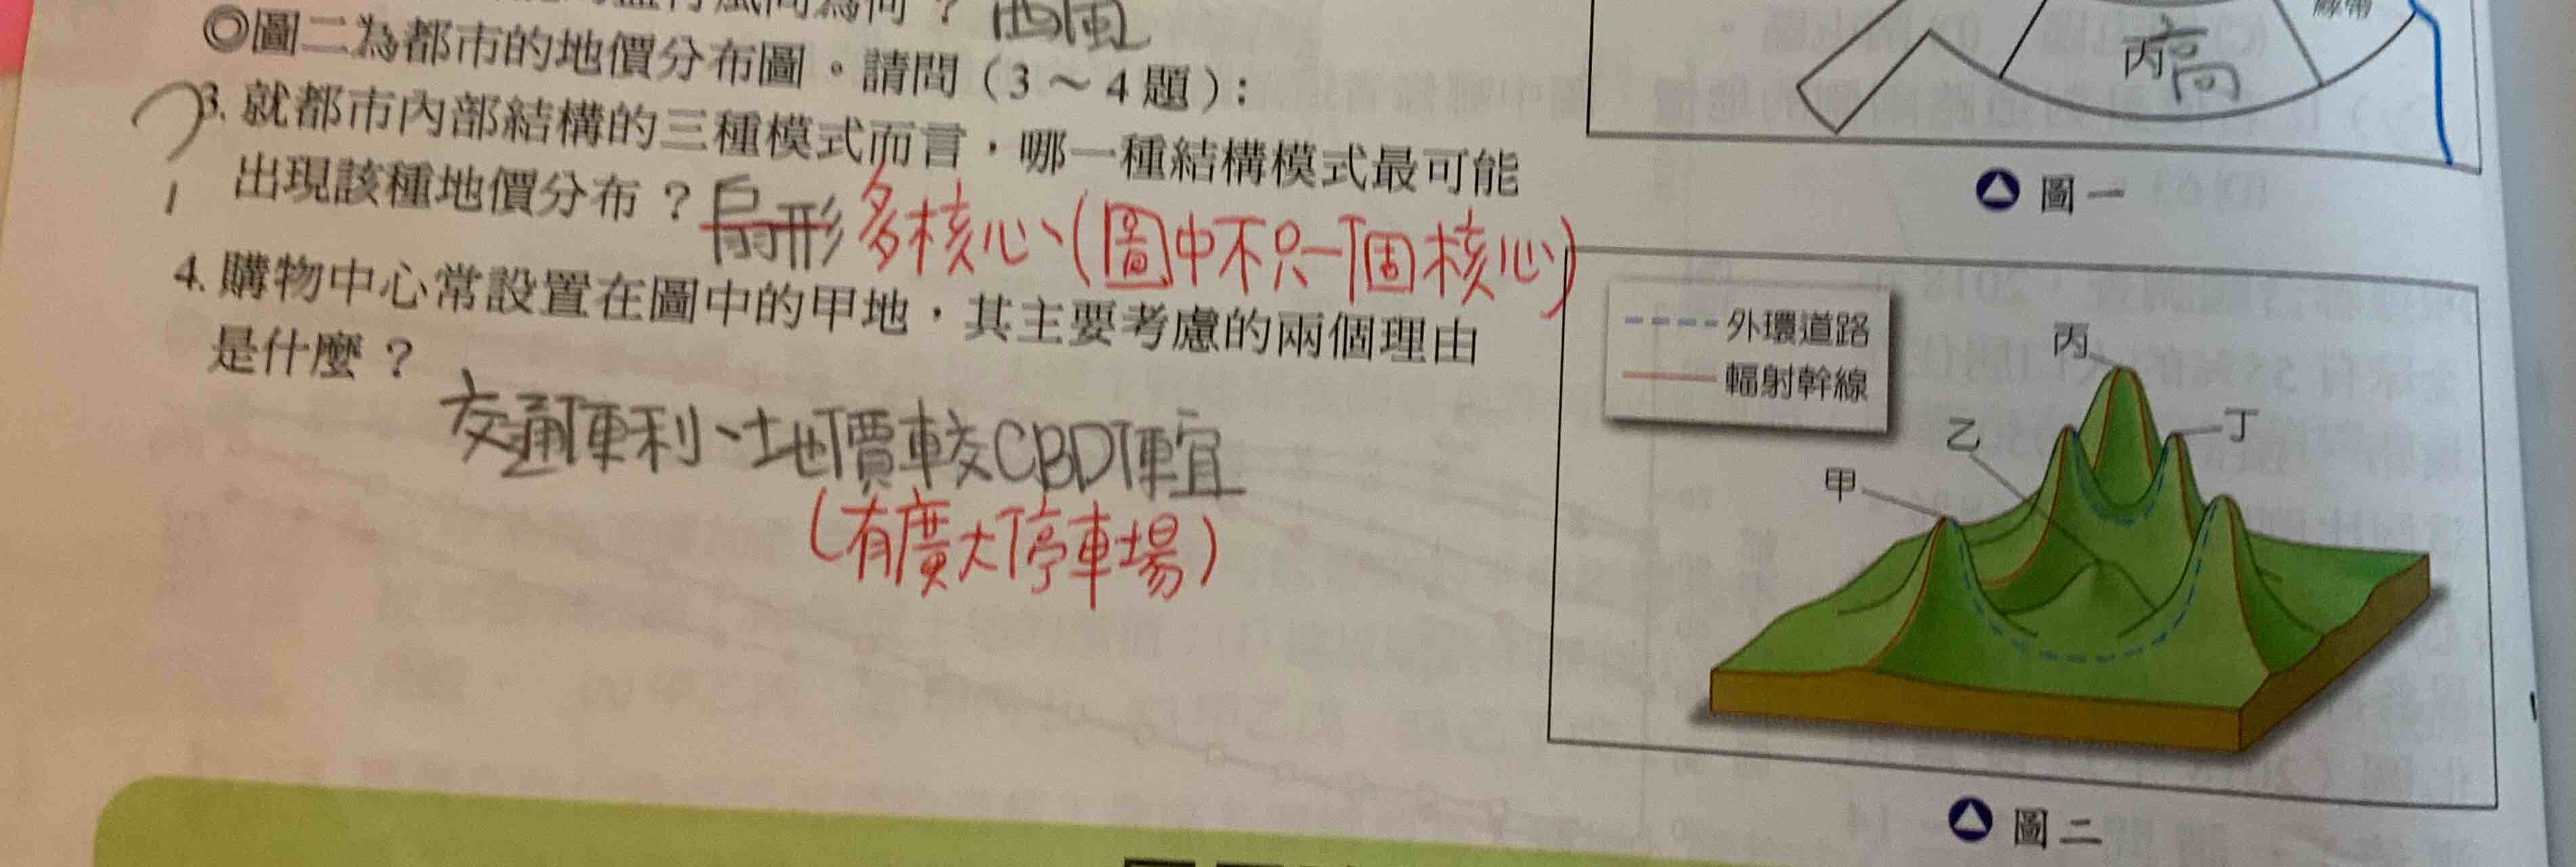 西風
◎圖二為都市的地價分布圖。請問（3～4題）：
3. 就都市內部結構的三種模式而言，哪一種結構模式最可能
出現該種地價分布？扇形 多核心、(圖中不只一個核心)
4. 購物中心常設置在圖中的甲地，其主要考慮的兩個理由
是什麼？
交通便利、土地價較CBD便宜
(有廣大停車場)
丙高
圖一
外環道路
輻射幹線
丙
丁
乙
甲
圖二